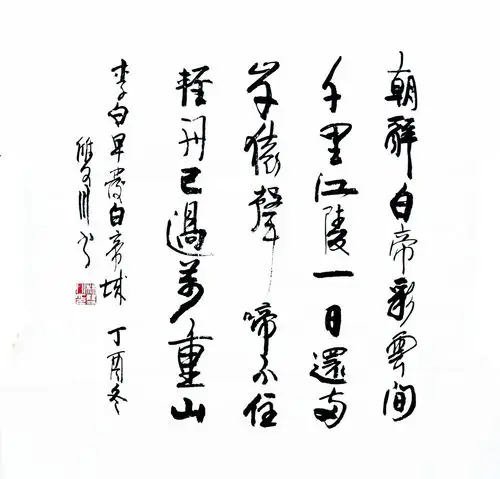 朝辭白帝彩雲間
千里江陵一日還兩
岸猿聲啼不住
輕舟已過萬重山
李白早發白帝城 丁酉冬